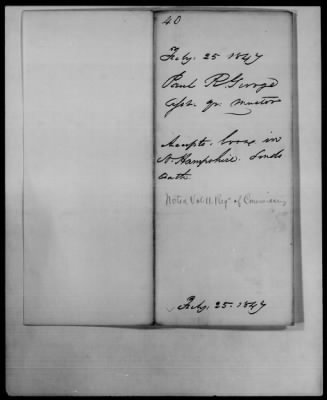 40
Feby. 25 1847
Paul R. George
Capt. qr. master
Accepts, born in
N. Hampshire. Sends
oath
Noted Vol 11. Reg. of Commissions
Feby. 25. 1847